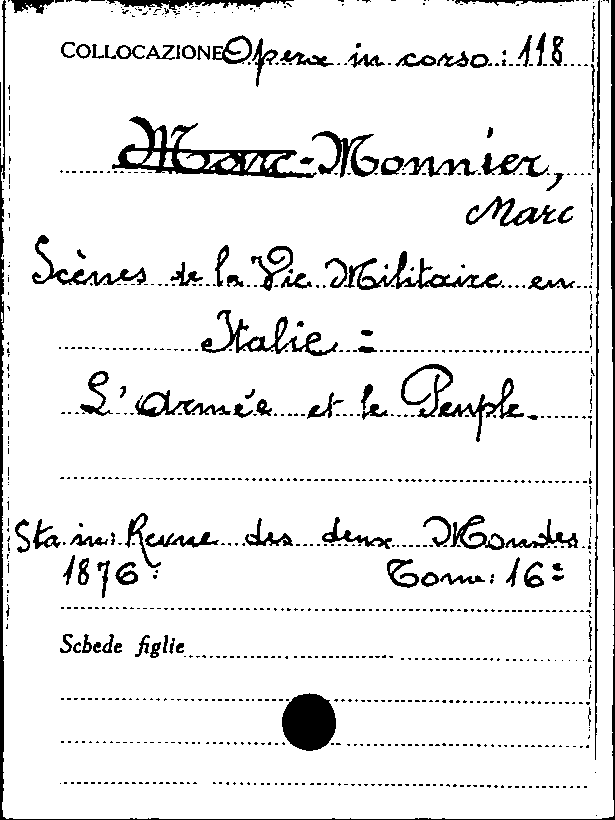 COLLOCAZIONE Opera in corso: 118
Marc-Monnier,
Marc
Scènes de la Vie Militaire en
Italie =
L'Armée et le Peuple.
Sta in: Revue des deux Mondes
1876: Tome: 16=
Schede figlie